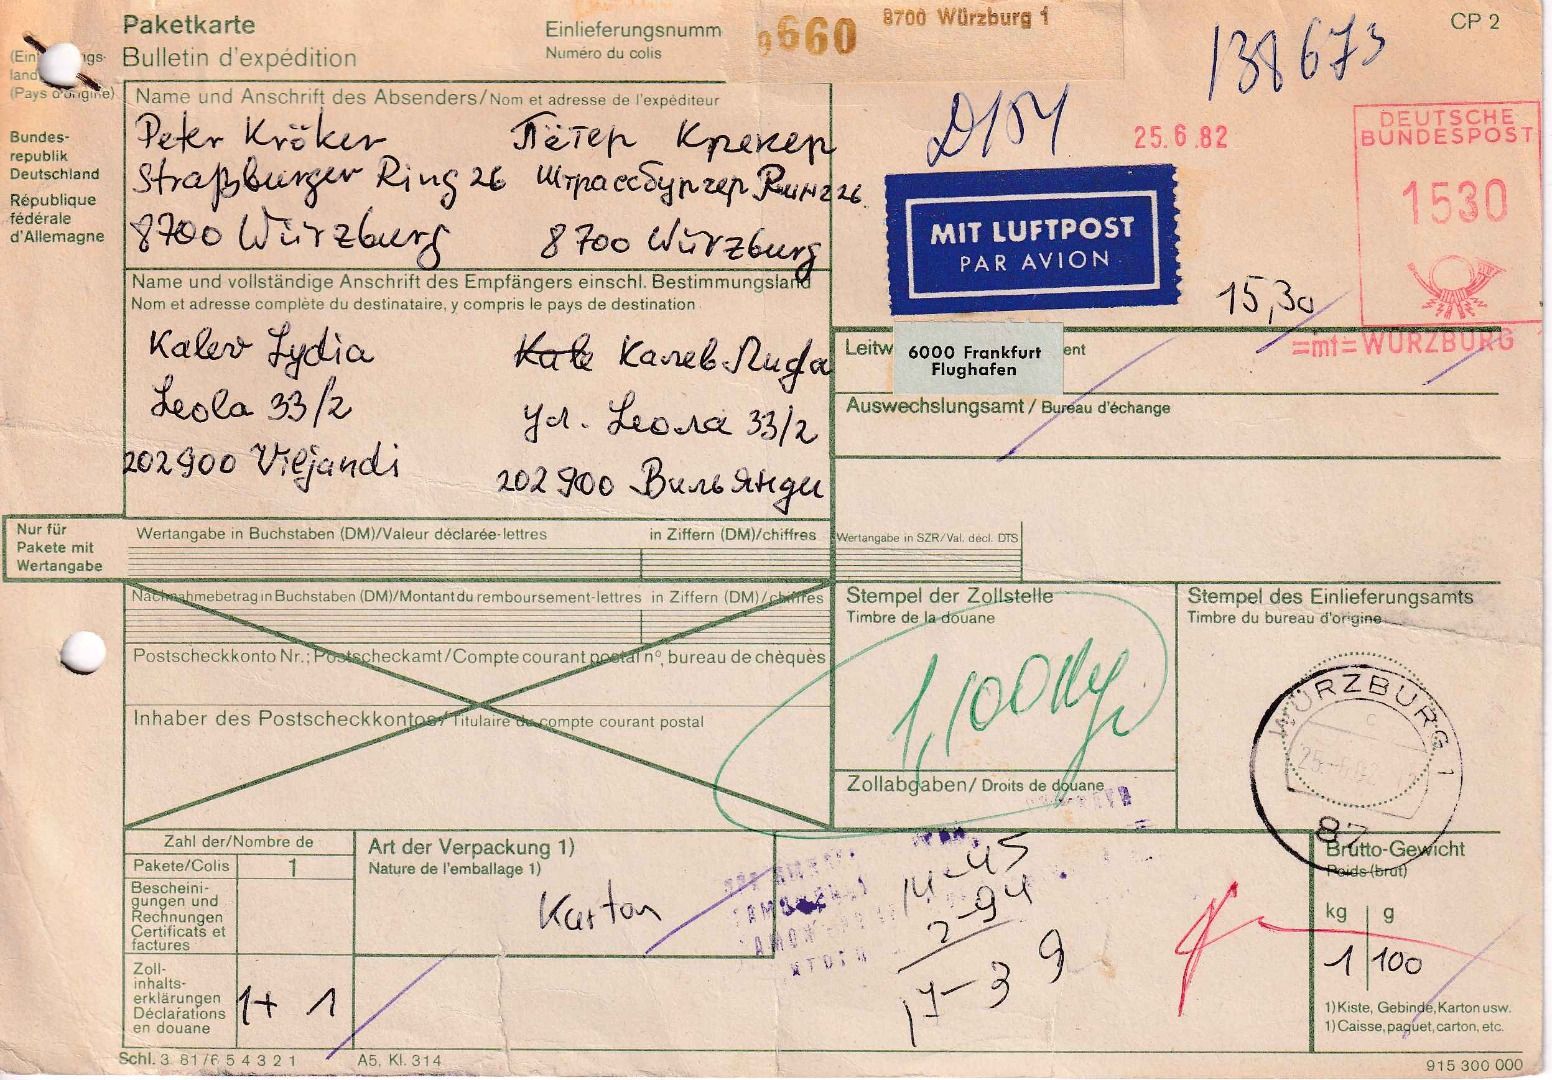 Paketkarte
Bulletin d'expédition
Einlieferungsnumm
Numéro du colis
660
8700 Würzburg 1
138673
CP 2
(Pays d'origine)
Bundes-
republik
Deutschland
République
fédérale
d'Allemagne
Name und Anschrift des Absenders/Nom et adresse de l'expéditeur
Peter Kröker
Straßburger Ring 26
8700 Würzburg
Пётер Крекер
Штрассбургер Ринг 26
8700 Würzburg
25.6.82
DEUTSCHE
BUNDESPOST
1530
=mt= WÜRZBURG
MIT LUFTPOST
PAR AVION
15,30
Name und vollständige Anschrift des Empfängers einschl. Bestimmungsland
Nom et adresse complète du destinataire, y compris le pays de destination
Kalev Lydia
Leola 33/2
202900 Viljandi
Kale Калев Лида
ул. Леола 33/2
202900 Вильянди
Leitw
ent
6000 Frankfurt
Flughafen
Auswechslungsamt / Bureau d'échange
Nur für
Pakete mit
Wertangabe
Wertangabe in Buchstaben (DM)/Valeur déclarée-lettres
in Ziffern (DM)/chiffres
Wertangabe in SZR/Val. décl. DTS
Nachnahmebetrag in Buchstaben (DM)/Montant du remboursement-lettres in Ziffern (DM)/chiffres
Postscheckkonto Nr.; Postscheckamt/Compte courant postal n°, bureau de chèques
Inhaber des Postscheckkontos/Titulaire du compte courant postal
Stempel der Zollstelle
Timbre de la douane
1,100 kg
Zollabgaben/Droits de douane
Stempel des Einlieferungsamts
Timbre du bureau d'origine
WÜRZBURG 1
c
87
Zahl der/Nombre de
Pakete/Colis
1
Bescheini-
gungen und
Rechnungen
Certificats et
factures
Zoll-
inhalts-
erklärungen
Déclarations
en douane
1+1
Art der Verpackung 1)
Nature de l'emballage 1)
Karton
14-45
2-94
17-39
Brutto-Gewicht
Poids (brut)
kg
g
1
100
1) Kiste, Gebinde, Karton usw.
1) Caisse, paquet, carton, etc.
Schl. 3 81/6 5 4 3 2 1
A5, Kl. 314
915 300 000